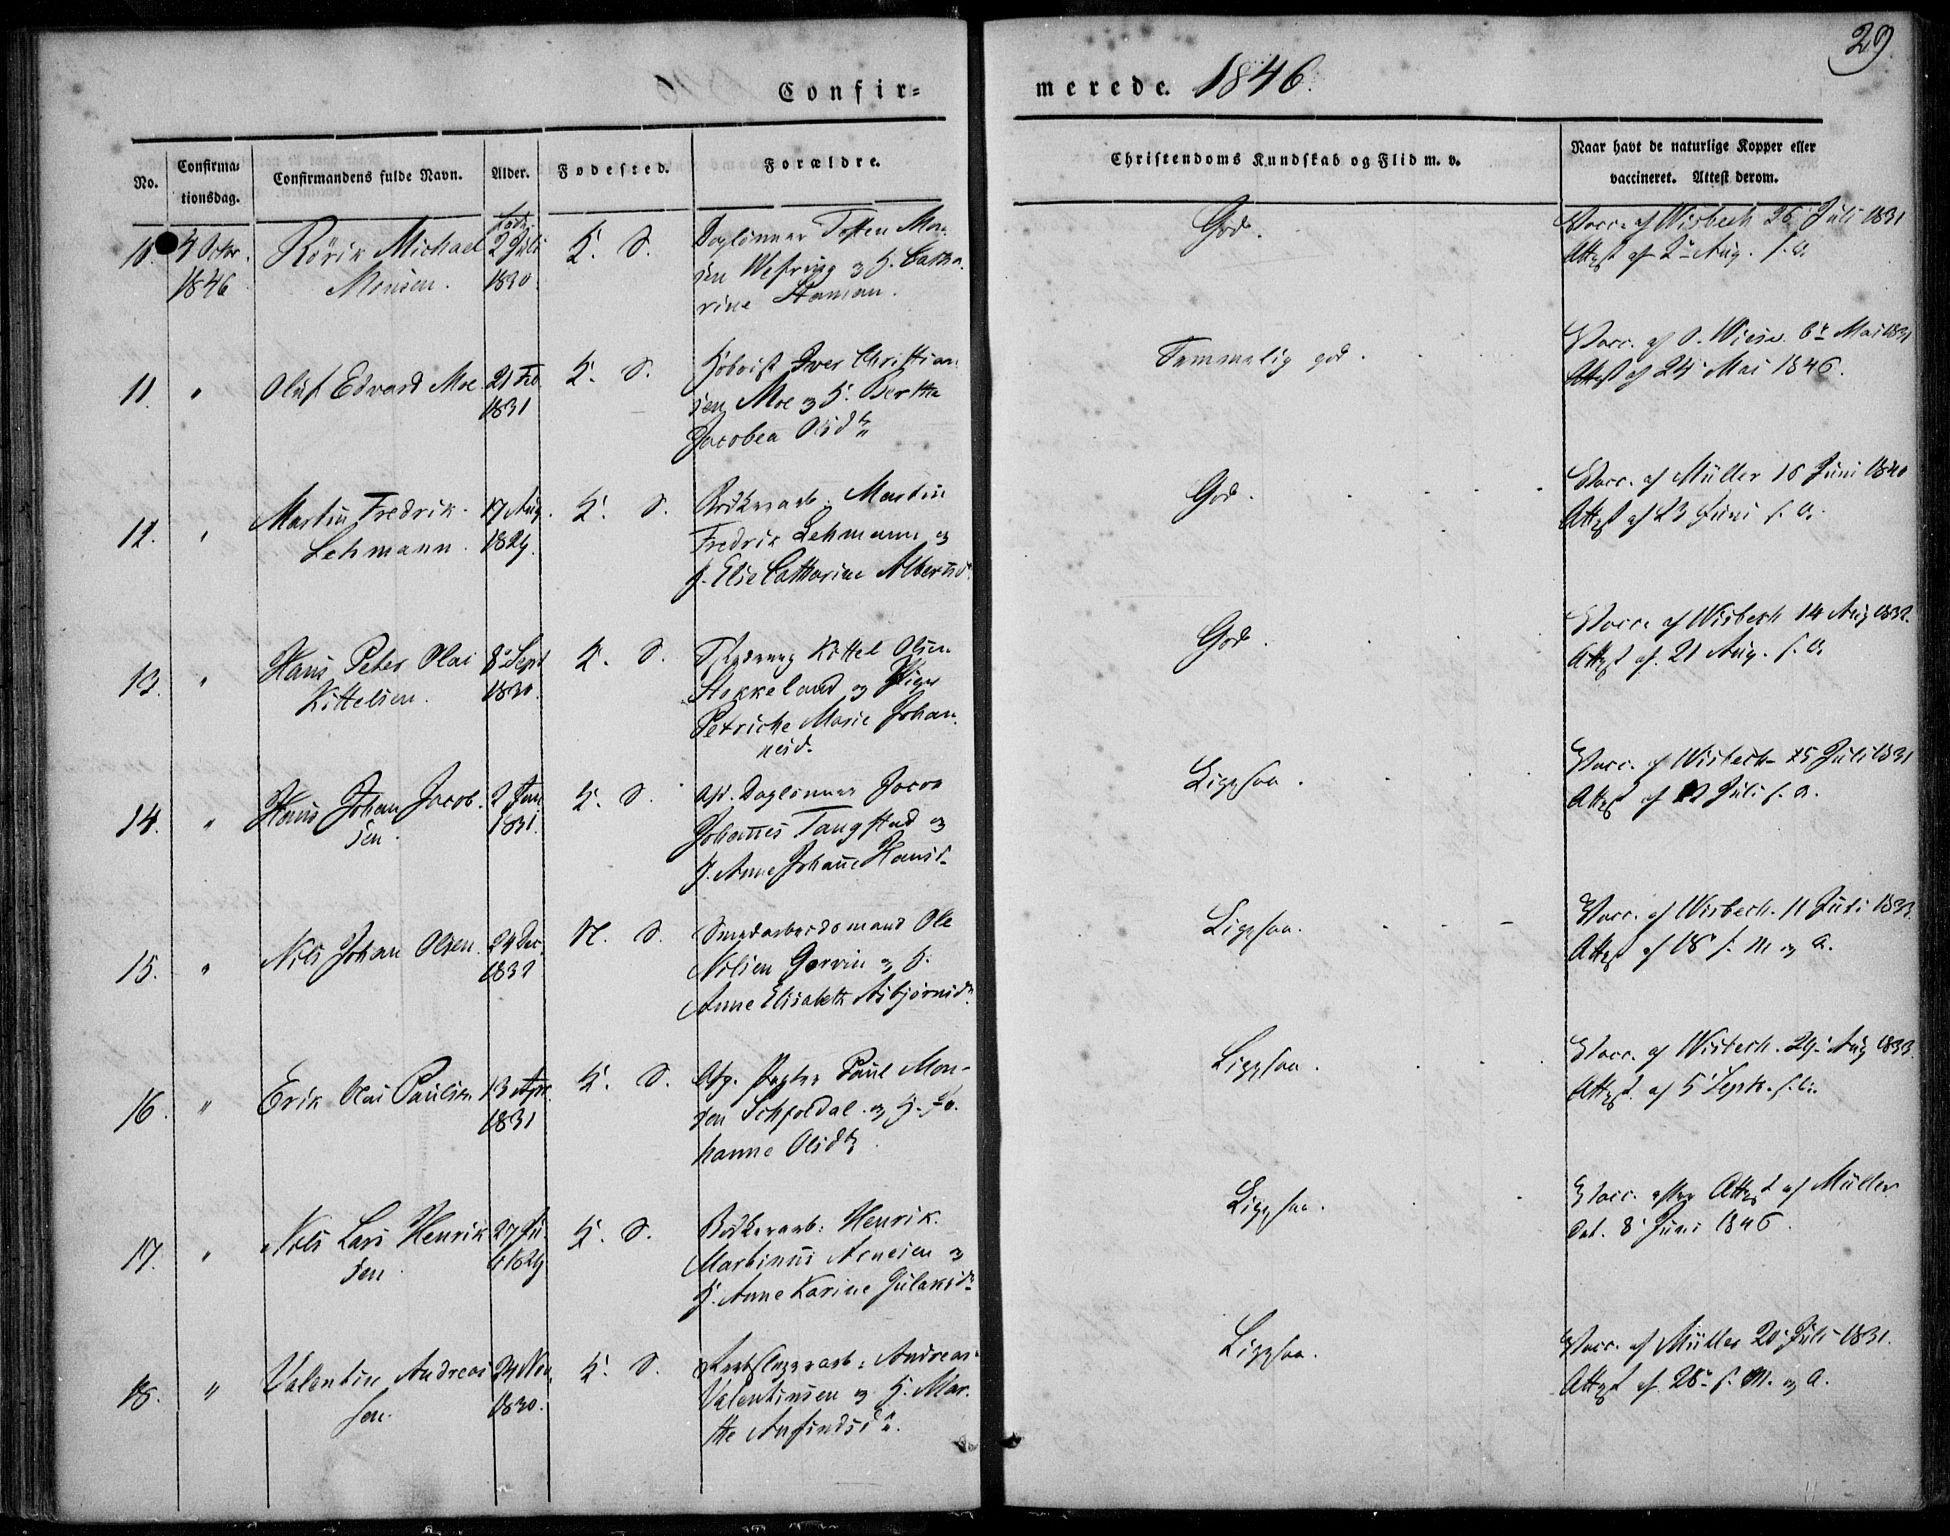 29.
Confir=
merede. 1846.
No.
Confirma=
tionsdag.
Confirmandens fulde Navn.
Alder.
Fødested.
Forældre.
Christendoms Kundskab og Flid m. v.
Naar havt de naturlige Kopper eller
vaccineret. Attest derom.
10. 4 Octbr. 1846
Rörik Michael
Monsen.
født
2 Juli
1830.
K. S.
Daglønner Mon=
sen Wefring og H. Catha=
rine
God.
Vacc. af Wisbech 26 Juli 1831
Attest af 2 Aug. s. A.
11. "
Oluf Edvard Moe
21 Feb
1831
K. S.
Iver Christian=
sen Moe og H. Bertha
Jacobea Olsdtr
Temmelig god.
Vacc. af O. Wiese 6te Mai 1831
Attest af 24 Mai 1846.
12. "
Martin Fredrik
Lehmann.
17 Aug.
1829.
K. S.
Martin
Fredrik Lehmann og
H. Elie Cathrine Albertsd.
God.
Vacc. af Müller 18 Juni 1840
Attest af 23 Juni s. A.
13. "
Hans Peter Olai
Kittelsen.
8 Sept
1830.
K. S.
Kittel Olsen
Stokkeland og Pige
Petriche Marie Johan=
nesd.
God.
Vacc. af Wisbech 14 Aug 1832.
Attest af 21 Aug. s. A.
14. "
Hans Johan Jacob=
sen.
2 Jan
1831.
K. S.
Daglønner Jacob
Johannes Tangstad og
H. Anne Johanne Hansd.
Ligesaa.
Vacc. af Wisbech 15 Juli 1831
Attest af 22 Juli s. A.
15. "
Nils Johan Olsen.
24 Dec.
1832
N. S.
Smedarbeidsmand Ole
Nilsen Gorvin og H.
Anne Elisabeth Asbjørnsd.
Ligesaa.
Vacc. af Wisbech 11 Juli 1833.
Attest af 18 s. M. og A.
16. "
Erik Olai Paulsen
13 Apr.
1831
K. S.
Paul Mon=
sen og H. Jo=
hanne Olsdtr
Ligesaa.
Vacc. af Wisbech 29 Aug 1833.
Attest af 5 Septb. s. A.
17. "
Nils Lars Henrik
sen
27
1829
K. S.
Bødkerarb: Henrik
Martinus Arnesen og
H. Anne Karine
Ligesaa.
Vacc. efter Attest af Müller
dat. 8 Juni 1846.
18. "
Valentin Andreas
sen.
24 Nov.
1830.
K. S.
Andreas
Valentinsen og H. Mar=
the Anfindsdr.
Ligesaa.
Vacc. af Müller 20 Juli 1831.
Attest af 28 s. M. og A.